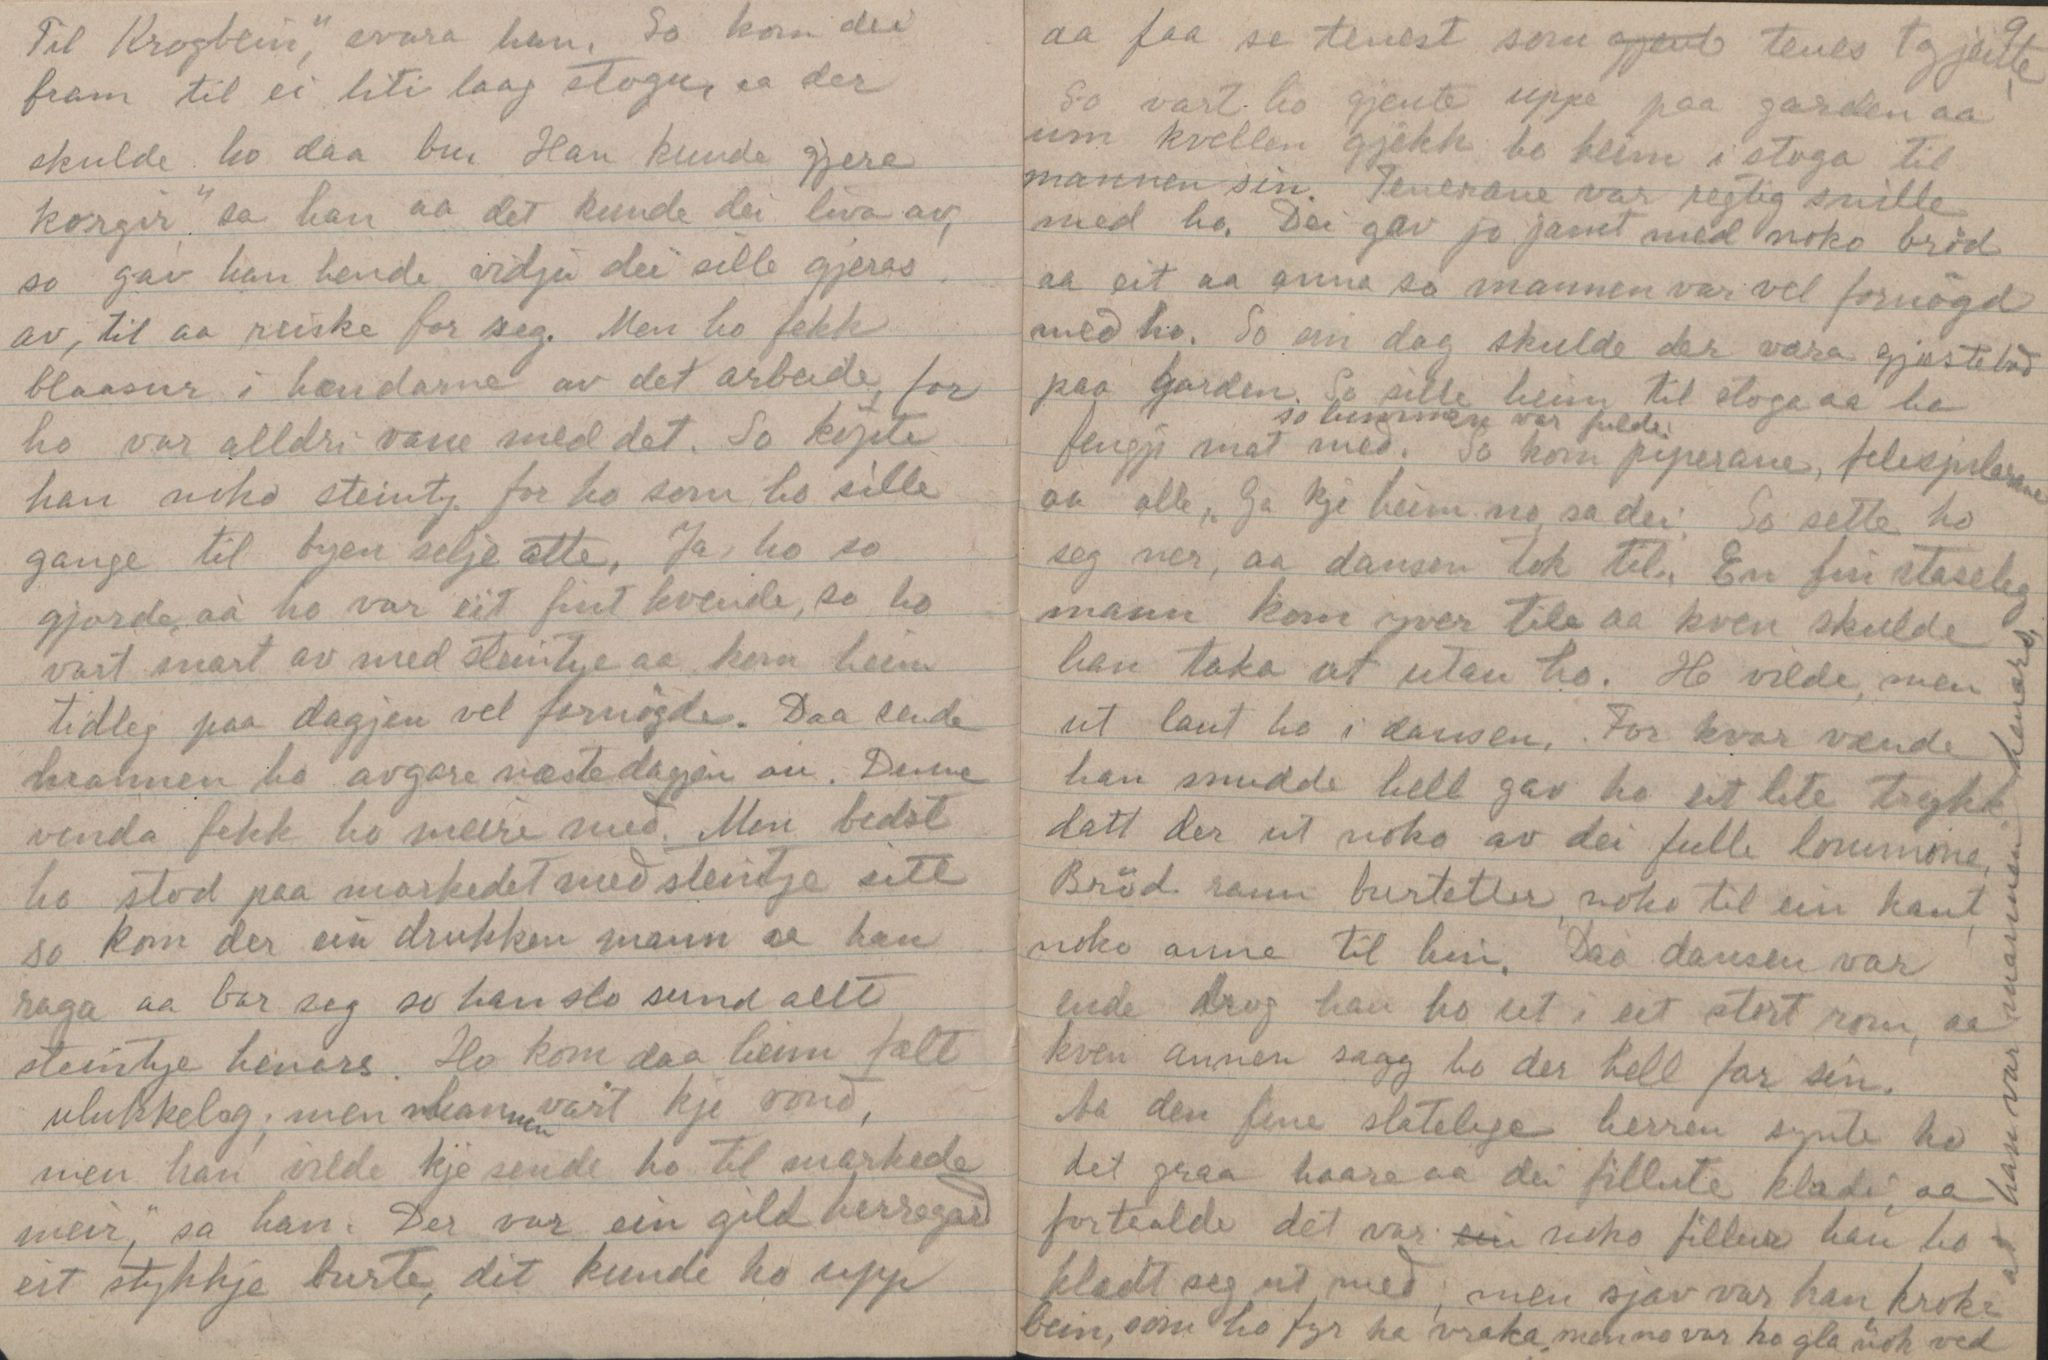 Til Krogbein", svara han. So kom dei
fram til ei liti laag stogu, aa der
skulde ho daa bu. Han kunde gjera
korgir," sa han aa det kunde dei liva av,
so gav han hende vidju dei sille gjeras
av, til aa reiske for seg. Men ho fekk
blaasur i hændarne av det arbeide, for
ho var alldri vane med det. So köpte
han noko steinty for ho som ho sille
gange til byen selje atte. Ja, ho so
gjorde, aa ho var eit fint kvende, so ho
vart snart av med steintye aa kom heim
tidleg paa dagjen vel fornögde. Daa sende
mannen ho avgare næste dagjen au. Denne
venda fekk ho meire med. Men bedst
ho stod paa markedet med steintye sitt
so kom der ein drukken mann aa han
raga aa bar seg so han slo sund allt
steintye henars. Ho kom daa heim fælt
ulukkeleg; men mannen vart kje vond,
men han vilde kje sende ho til markede
meir," sa han. Der var ein gild herregard
eit stykkje burte, dit kunde ho upp
9
aa faa se tenest som gjent tenes tgjente
So vart ho gjente uppe paa garden aa
um kvellen gjekk ho heim i stoga til
mannen sin. Tenerane var regtig snille
med ho. Dei gav jo jamt med noko bröd
aa eit aa anna so mannen var vel fornögd
med ho. So ein dag skulde der vera gjestebod
paa garden. So sille heim til stoga aa ho
so lummen var fulde.
fengji mat med. So kom piperane, felespelarane
aa alle, "Ga kje heim no, sa dei. So sette ho
seg ner, aa dansen tok til. En fin staseleg
mann kom yver tile aa kven skulde
han taka ut utan ho. H vilde, men
ut laut ho i dansen. For kvar vende
han snudde hell gav ho eit lite trykk
datt der ut noko av dei fulle lommone.
Bröd rann burtetter noko til ein kant,
noko anna til hin. Daa dansen var
ende drog han ho ut i eit stort rom, aa
kven annen saag ho der hell far sin.
Aa den fine statelege herren synte ho
det graa haare aa dei fillute kladi, aa
fortealde det var ein noko fillur han ho
kladt seg ut med; men sjav var han kroke
bein, som ho fyr ha vraka, men no var ho gla nok ved
at han var mannen henars.